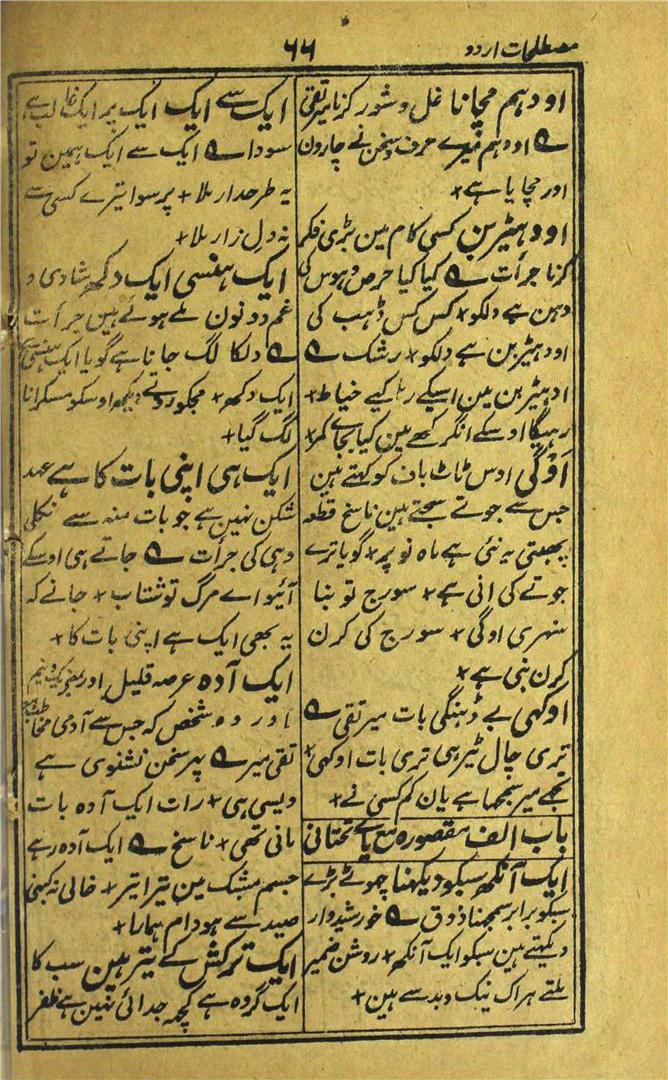 مصطلحات اردو
۶۶
اودہم مچانا غل و شور کرنا میر تقی
ؔ اودہم میرے حرف و سخن نے چارون
اور مچایا ہے +
اودہیڑبن کسی کام مین بڑی فکر
کرنا جرأت ؔ کیا کیا حرص و ہوس کی
دہن ہے دلکو + کس کس ڈہب کی
اودہیڑبن ہے دلکو + رشک ؔ
ادہیڑبن مین اسیکے رہا کیے خیاط +
رہیگا اوسکے انگرکھے مین کیا بجاے کمر +
اَوگی اوس ٹاٹ باف کو کہتے ہین
جس سے جوتے سجتے ہین ناسخ قطعہ
پھبتی یہ نئی ہے ماہ نو پر + گویا ترے
جوتے کی انی ہے + سورج تو بنا
سنہری اوگی + سورج کی کرن
کرن بنی ہے +
اوکھی بے ڈہنگی بات میر تقی ؔ
تری چال ٹیڑہی تری بات اوکھی +
تجھے میر سمجھا ہے یان کم کسی نے +
باب الف مقصورہ مع یاے تحتانی
ایک آنکھ سبکو دیکھنا چھوٹے بڑے
سبکو برابر سمجھنا ذوق ؔ خورشید وار
دیکھتے ہین سبکو ایک آنکھ + روشن ضمیر
ملتے ہر اک نیک و بد سے ہین +
ایک سے ایک ایک پر ایک غالب ہے
سودا ؔ ایک سے ایک ہمین تو
یہ طرحدار ملا + پر سوا تیرے کسی سے
نہ دل زار ملا +
ایک ہنسی ایک دکھ شادی و
غم دونون ملے ہوئے ہین جرأت
ؔ دلکا لگ جانا ہے گویا ایک ہنسی ہے
ایک دکھ + مجکو روتے دیکھ اوسکو مسکرانا
لگ گیا +
ایک ہی اپنی بات کا ہے عہد
شکن نہین ہے جو بات منہ سے نکلی
وہی کی جرأت ؔ جاتے ہی اوسکے
آئیو اے مرگ تو شتاب + جانے کہ
یہ بھی ایک ہے اپنی بات کا +
ایک آدہ عرصہ قلیل اور بمعنی یک و نیم
اور وہ شخص کہ جس سے آدمی مخاطب
تقی میر ؔ پہر سخن نشنوی ہے
ویسی ہی + رات ایک آدہ بات
مانی تھی + ناسخ ؔ ایک آدہ رہے
جسم مشبک مین ترا تیر + خالی نہ کبھی
صید سے ہو دام ہمارا +
ایک ترکش کے تیر ہین سب کا
ایک گروہ ہے کچھ جدائی نہین ہے ظفر